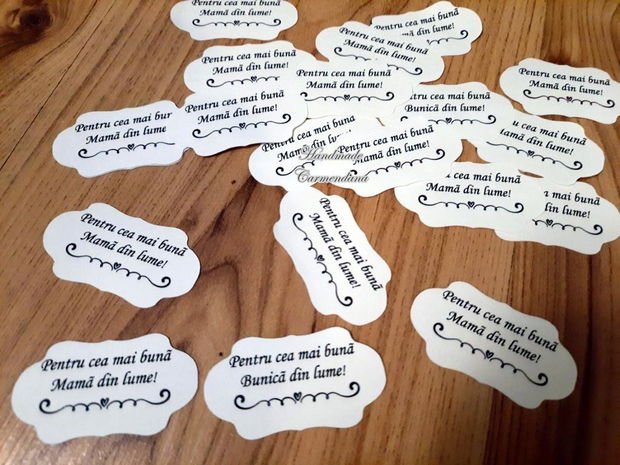 Pentru cea mai bună
Mamă din lume!
Pentru cea mai bună
Mamă din lume!
Pentru cea mai bună
Mamă din lume!
Pentru cea mai bună
Mamă din lume!
Pentru cea mai bună
Mamă din lume!
Pentru cea mai bună
Mamă din lume!
Pentru cea mai bună
Bunică din lume!
Pentru cea mai bună
Mamă din lume!
Pentru cea mai bur
Mamă din lume
Pentru cea mai bună
Mamă din lume!
Pentru cea mai bună
Mamă din lume!
cea mai bună
lamă din lume!
cea mai bună
Mamă din lume!
mai bună
din lume!
Handmade
Carmendiana
Pentru cea mai bună
Mamă din lume!
Pentru cea mai bună
Mamă din lume!
Pentru cea mai bună
Mamă din lume!
Pentru cea mai bună
Mamă din lume!
Pentru cea mai bună
Bunică din lume!